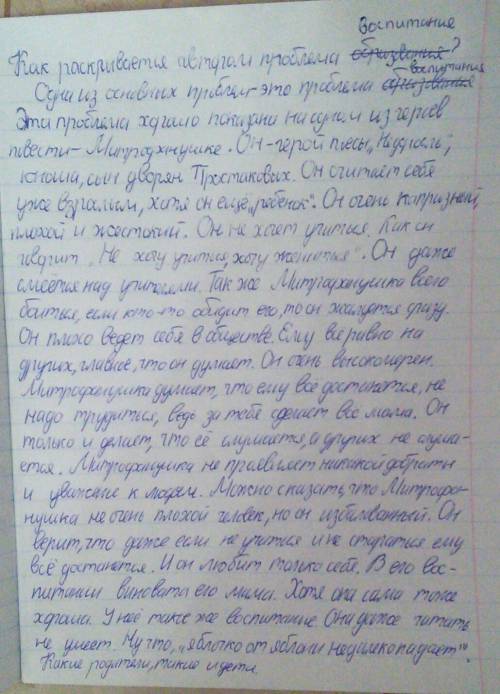 Воспитание
Как раскривается автором проблема образвания?
воспитания
Одна из основных проблем- это проблема образвания
Эта проблема хорошо показана на одном из героев
повести- Митрофанушке. Он- герой пьесы „Недоросль",
юноша, сын дворян Простаковых. Он считает себя
уже взраслым, хотя он ещё „ребенок". Он очень капризный,
плохой и жестокий. Он не хочет учиться. Как он
говорит „Не хочу учиться, хочу жениться". Он даже
смеётся над учителями. Так же Митрофанушка всего
боиться, если кто-то обидит его, то он жалуется сразу.
Он плохо ведет себя в обществе. Ему всё равно на
других, главное, что он думает. Он очень высокомерен.
Митрофанушка думает, что ему всё достанется, не
надо трудиться, ведь за тебя сделает всё мама. Он
только и делает, что её слушается, а других не слуша-
ется. Митрофанушка не проявляет никакой доброты
и уважение к людям. Можно сказать, что Митрофа-
нушка не очень плохой человек, но он избалованный. Он
верит, что даже если не учиться и не стараться ему
всё достанется. И он любит только себя. В его вос-
питании виновата его мама. Хотя она сама тоже
хороша. У неё такое же воспитание. Она даже читать
не умеет. Ну что, „яблочко от яблони недалеко падает".
Какие родители, такие и дети.